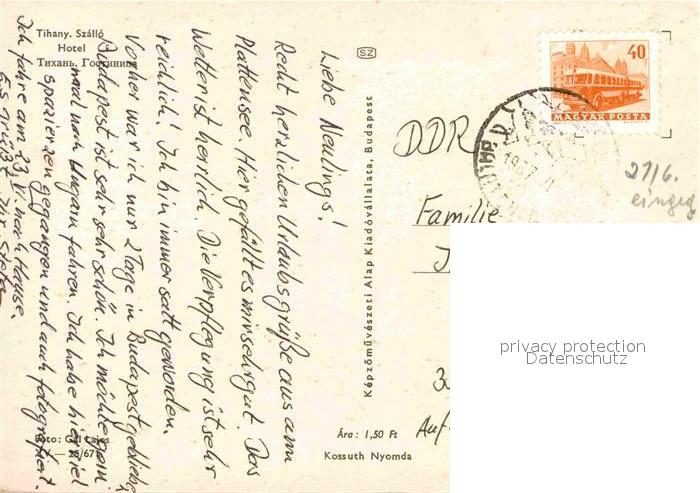 Tihany. Szálló
Hotel
Тихань. Гостиница
Liebe Neulings!
Recht herzlichen Urlaubsgrüße aus am
Plattensee. Hier gefällt es mir sehr gut. Das
Wetter ist herrlich. Die Verpflegung ist sehr
reichlich! Ich bin immer satt geworden.
Vorher war ich nur 2 Tage in Budapest geblieben
Budapest ist sehr sehr schön. Ich möchte gern
mal nach Ungarn fahren. Ich habe hier viel
spazieren gegangen und auch fotografiert.
Ich fahre am 23. V. nach Hause.
Es grüßt Ihr Stefan
Foto: Gál Lajos
25/671
SZ
Képzőművészeti Alap Kiadóvállalata, Budapest
Ára: 1,50 Ft
Kossuth Nyomda
40 f
MAGYAR POSTA
DDR
21/6.
einge
Familie
privacy protection
Datenschutz
Auf